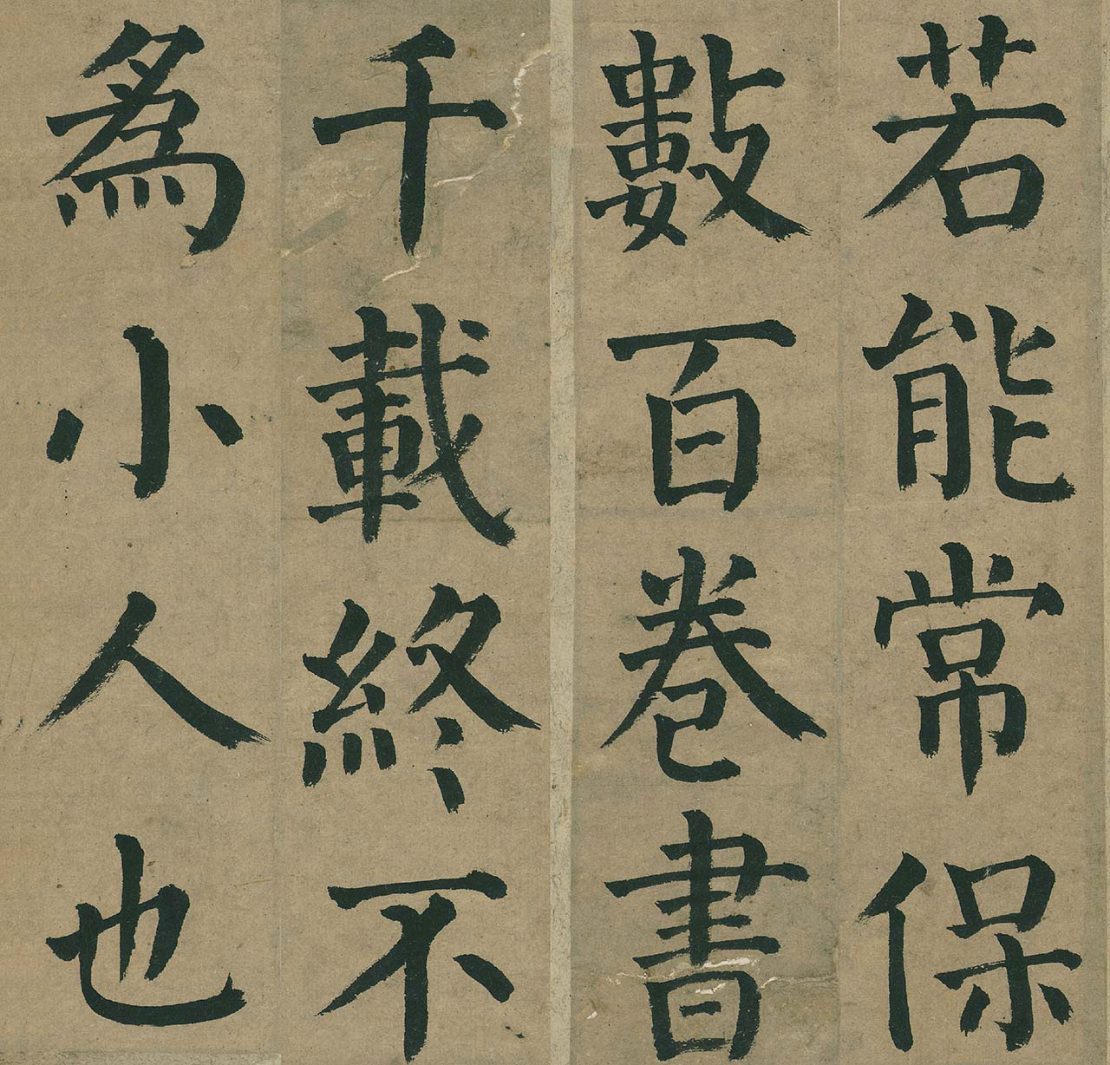 若能常保
數百卷書
千載終不
為小人也